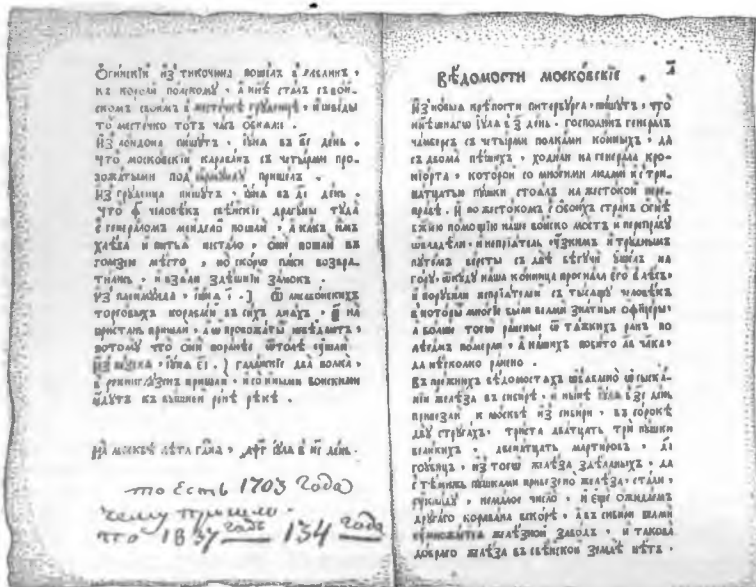 Огинскїи из тикочина пошелъ
къ королю полскому , а ннѣ сталъ съ вои-
скомъ своимъ в мѣстечкѣ и шведы
то мѣстечко тотъ часъ
Из лондона пишутъ , їюня въ день .
Что московскїи караванъ съ четырми про-
вожатыми под пришелъ .
Из грѹденца пишутъ , їюня въ день .
Что человѣкъ свѣискїе драгѹны тѹда
с генераломъ пошли , а какъ имъ
хлѣба и питья нестало , они пошли въ
мѣсто , но скоро паки возвра-
тились , и взяли здѣшнїи замокъ .
Из їюня
торговыхъ корабли въ сихъ дняхъ , на
пристань пришли , а ѡ провожаты
потомѹ что они поранѣе ѿтолѣ
їюня . галанскїе два полка ,
в пришли , и со иными воискими
идѹтъ къ вышнеи ренѣ рѣкѣ .
На москвѣ лѣта гдня , ҂аѱг їюля в день .
то Есть 1703 года
чему прошло
по 1837 годъ — 134 года
ВѢДОМОСТИ МОСКОВСКІЕ .
Из новыя крѣпости питербѹрга , пишѹтъ , что
нынѣшнягѡ їюля в з день . господинъ генералъ
чамберсъ съ четырми полками конныхъ , да
съ двома пѣшихъ , ходилъ на генерала кро-
нїорта , которои со многими людми и с три-
натцатью пѹшки стоялъ на жестокой пере-
правѣ . И по жестокомъ с обоихъ странъ огнѣ
бжїю помощїю наше воиско мостъ и переправѹ
ѡвладѣли , и непрїятель ѹзкимъ и трѹднымъ
пѹтемъ версты съ двѣ бѣгѹчи ѹшелъ на
горѹ , ѿкѹдѹ наша конница прогнала его в лѣсъ ,
и порѹбили непрїятелей съ тысящѹ человѣкъ
в которы многїе были велми знатныи офицеры ,
а болши тогѡ раненые ѿ тѧжкихъ ранъ по
лѣсамъ померли , а нашихъ побито чвка ,
да нѣсколко ранено .
Въ прежнихъ вѣдомостяхъ ѡбявлено ѡ сыска-
нїи желѣза въ сибирѣ , и нынѣ їюля в день
привезли к москвѣ из сибири , въ сорокѣ
двѹ стрѹгахъ , триста дватцать три пѹшки
великихъ , дванатцать мартировъ , дї
гоубицъ , из тогѡ желѣза здѣланыхъ , да
с тѣмижъ пѹшками привезено желѣза , стали ,
ѹкладѹ , немалое число , и еще ожидаемъ
дрѹгаго коравана вскорѣ , а въ сибири велми
желѣзной заводъ , и такова
добраго желѣза въ свѣискои землѣ нѣтъ .